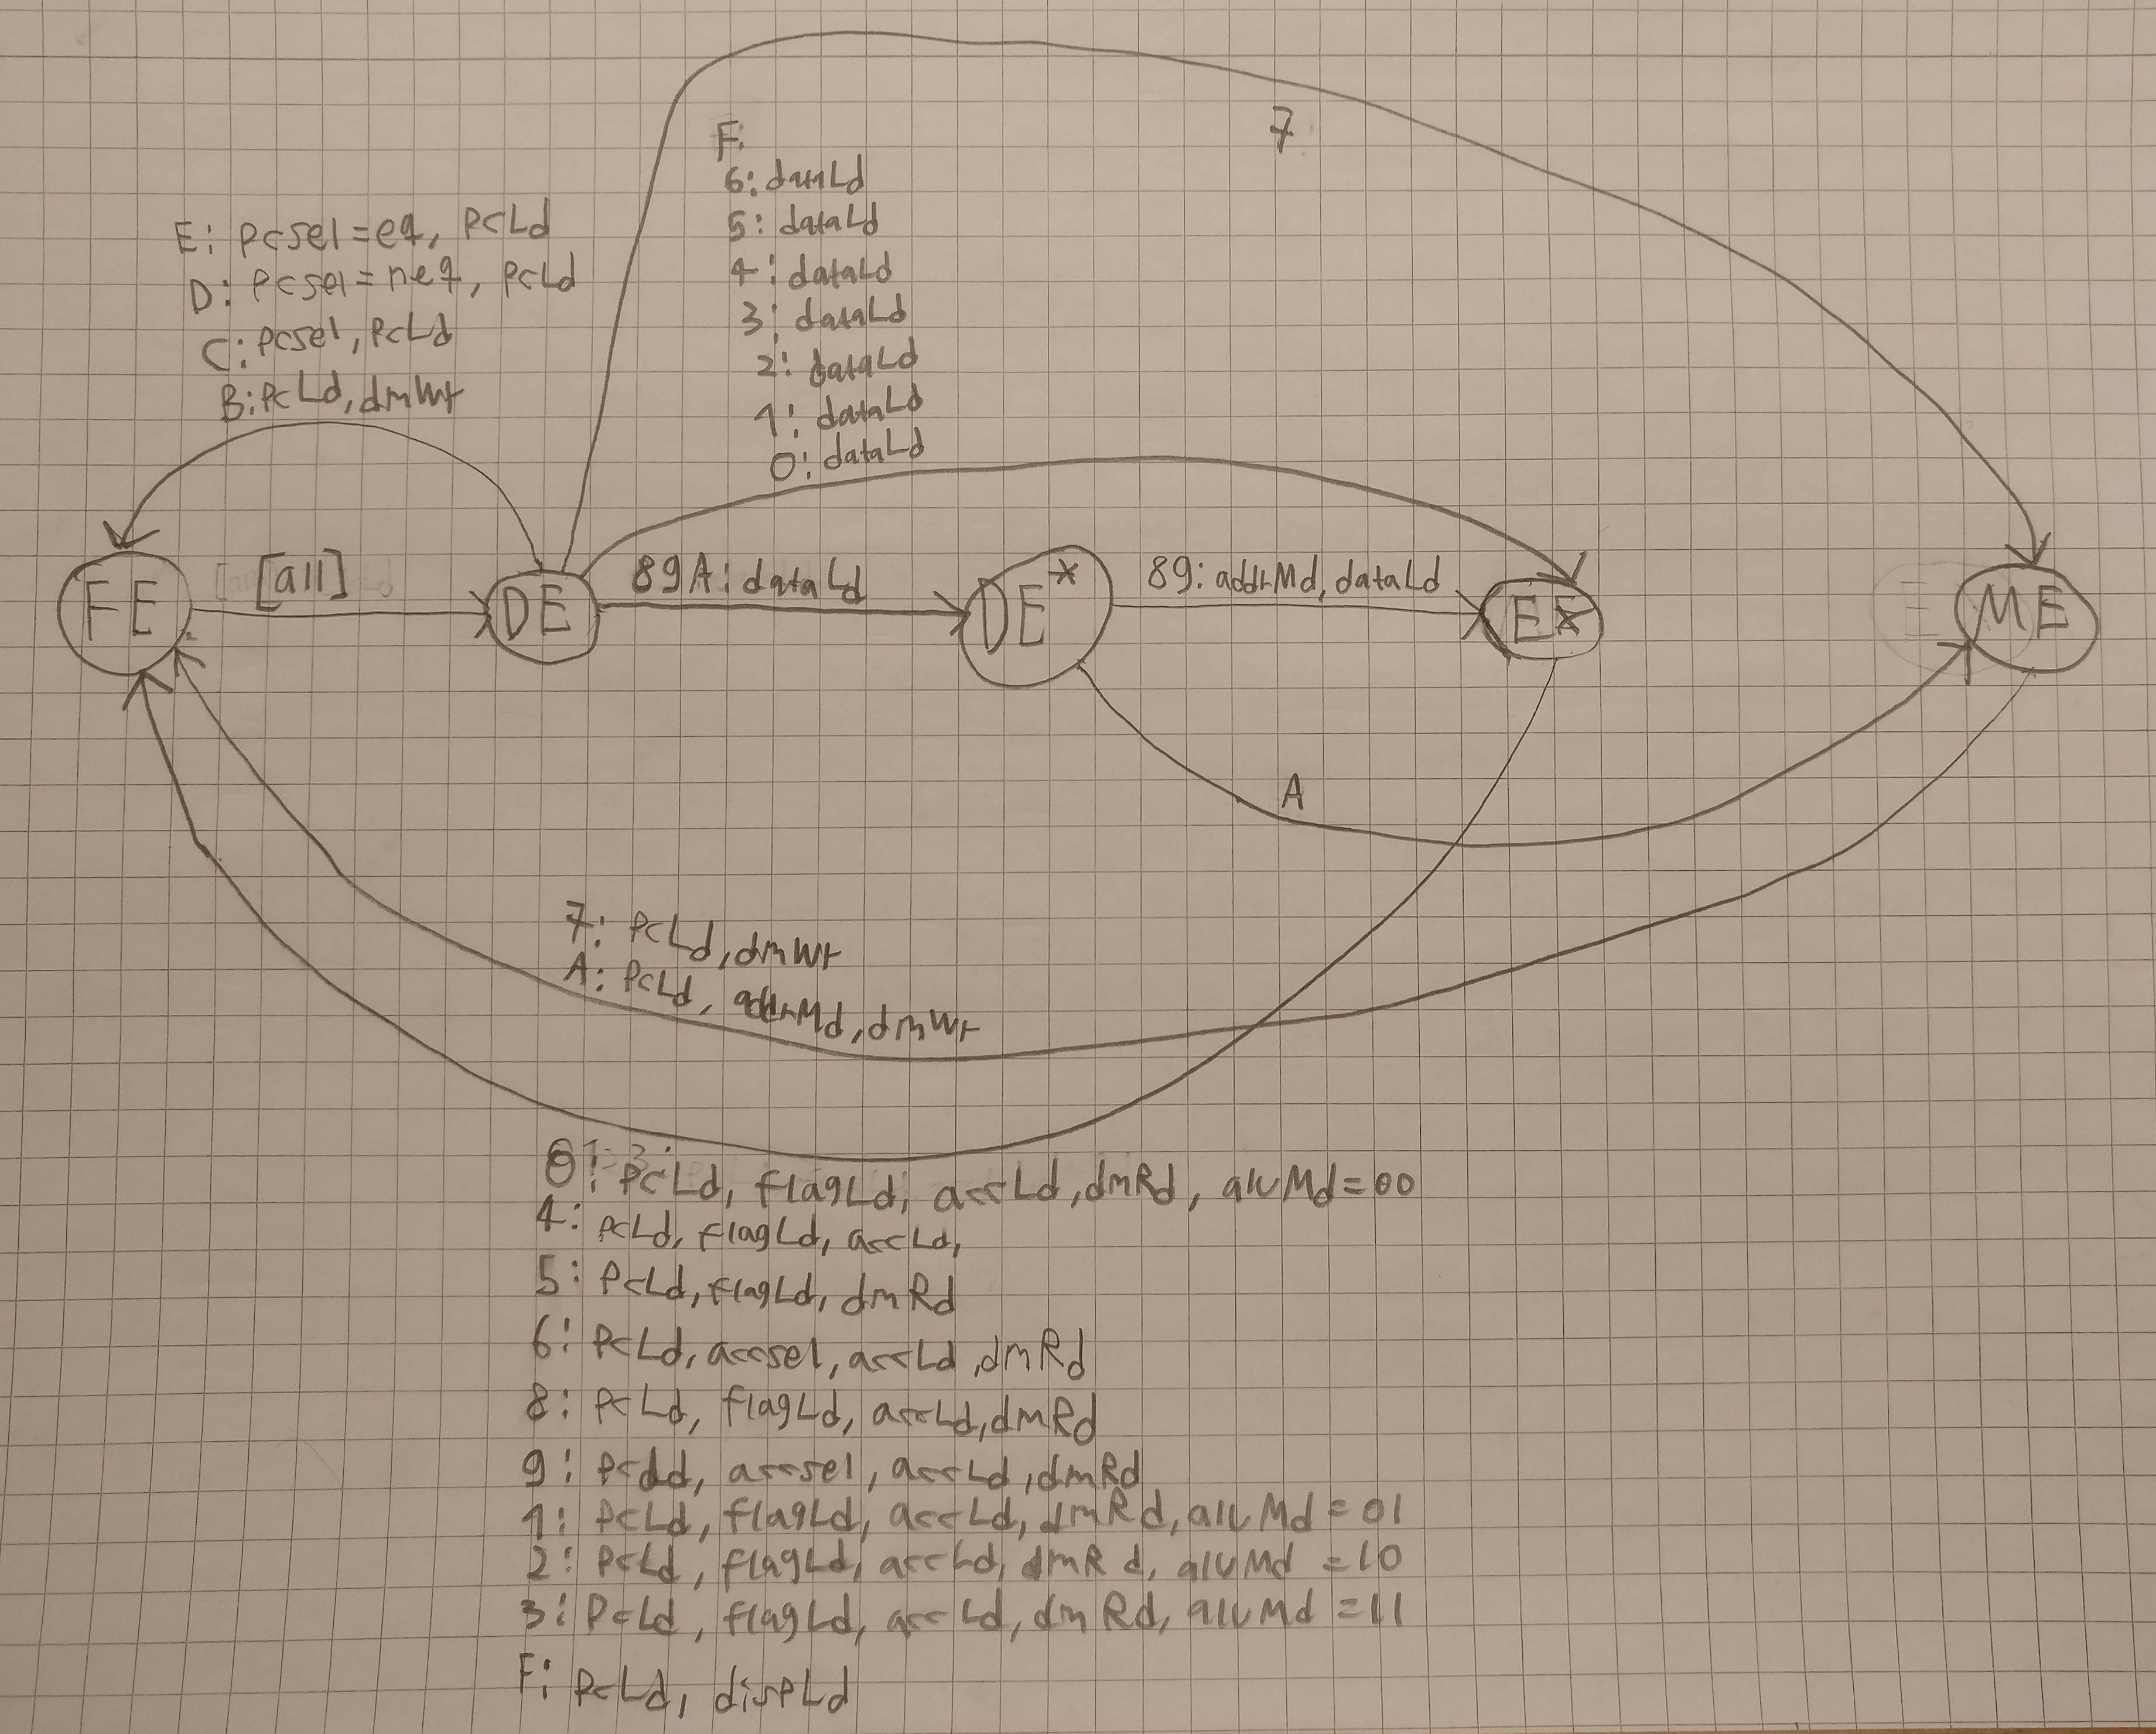 7
F:
6: dataLd
5: dataLd
4: dataLd
3: dataLd
2: dataLd
1: dataLd
0: dataLd
E: pcsel=eq, pcLd
D: pcsel=neq, pcLd
C: pcsel, pcLd
B: pcLd, dmWr
FE
[all]
DE
89A: dataLd
DE*
89: addrMd, dataLd
EX
ME
A
7: pcLd, dmWr
A: pcLd, addrMd, dmWr
0: pcLd, flagLd, accLd, dmRd, aluMd=00
4: pcLd, flagLd, accLd,
5: pcLd, flagLd, dmRd
6: pcLd, accsel, accLd, dmRd
8: pcLd, flagLd, accLd, dmRd
9: pcLd, accsel, accLd, dmRd
1: pcLd, flagLd, accLd, dmRd, aluMd=01
2: pcLd, flagLd, accLd, dmRd, aluMd=10
3: pcLd, flagLd, accLd, dmRd, aluMd=11
F: pcLd, dispLd